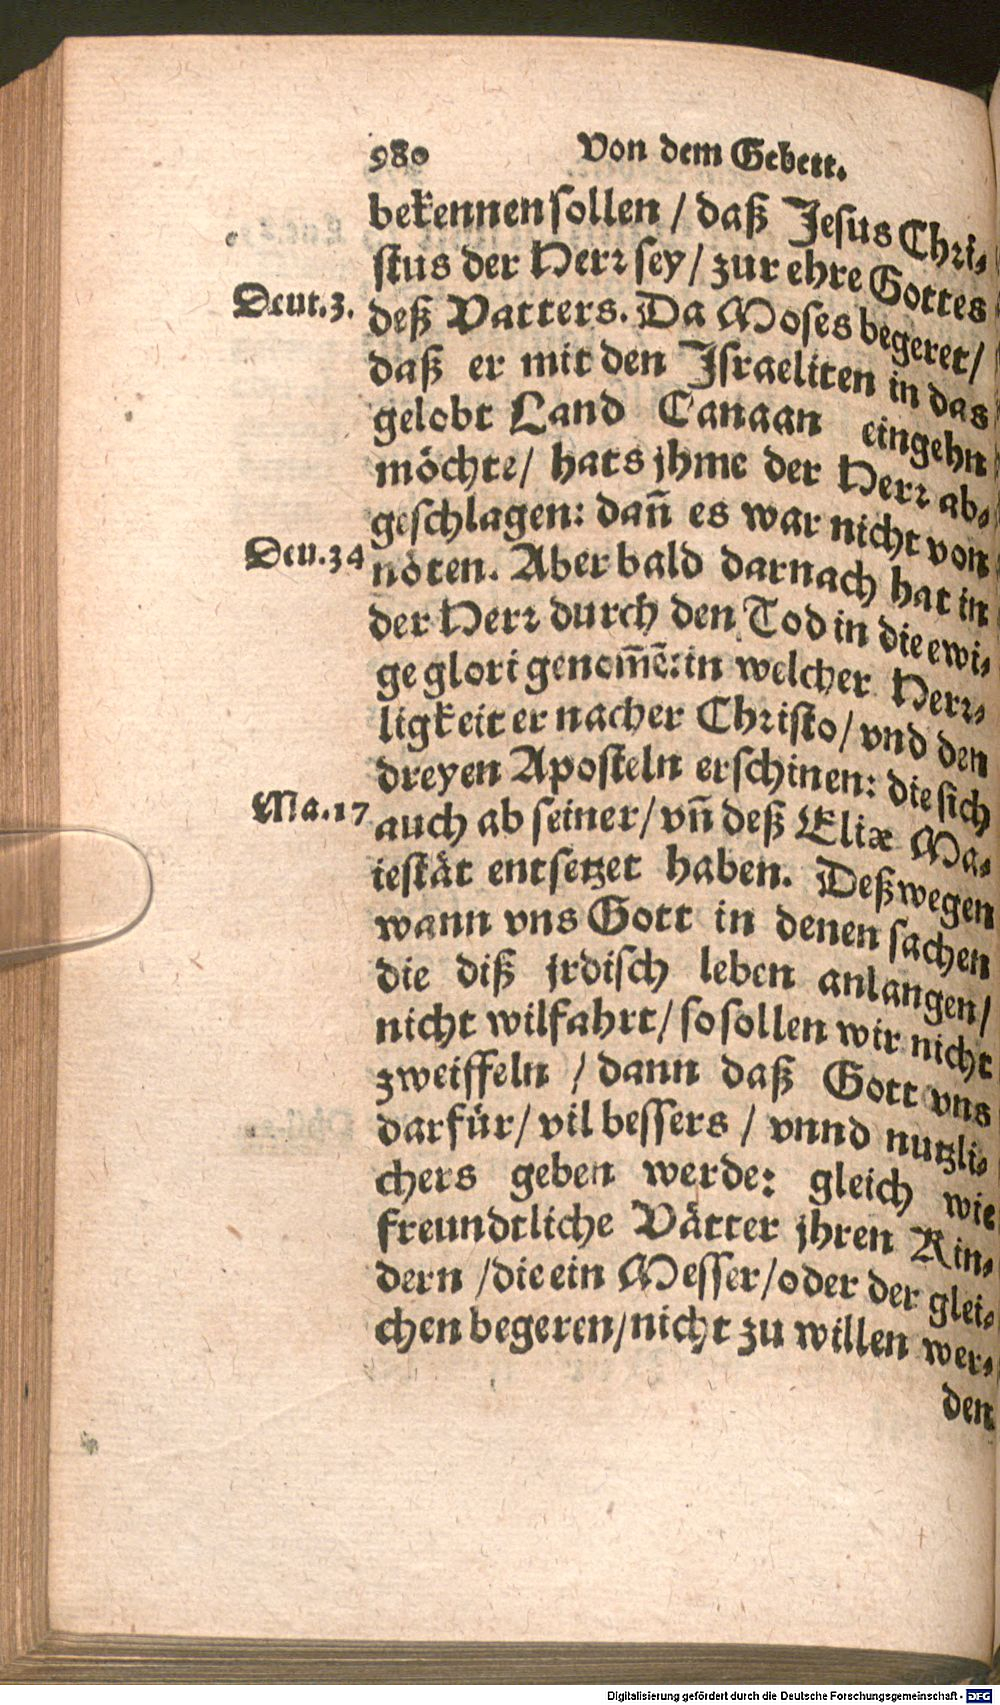 980 Von dem Gebett.
bekennen sollen / daß Jesus Chri-
stus der Herr sey / zur ehre Gottes
Deut.3.
deß Vatters. Da Moses begeret /
daß er mit den Israeliten in das
gelobt Land Canaan eingehn
möchte / hats jhme der Herr ab-
geschlagen: dann̄ es war nicht von
Deu.34
nöten. Aber bald darnach hat in
der Herr durch den Tod in die ewi-
ge glori genom̄ē: in welcher Herr-
ligkeit er nacher Christo / vnd den
dreyen Aposteln erschinen: die sich
Ma.17
auch ab seiner / vn̄ deß Eliæ Ma-
iestät entsetzet haben. Deßwegen
wann vns Gott in denen sachen
die diß jrdisch leben anlangen /
nicht wilfahrt / so sollen wir nicht
zweiffeln / dann daß Gott vns
darfür / vil bessers / vnnd nutzli-
chers geben werde: gleich wie
freundtliche Vätter jhren Kin-
dern / die ein Messer / oder der glei-
chen begeren / nicht zu willen wer-
den
Digitalisierung gefördert durch die Deutsche Forschungsgemeinschaft - DFG